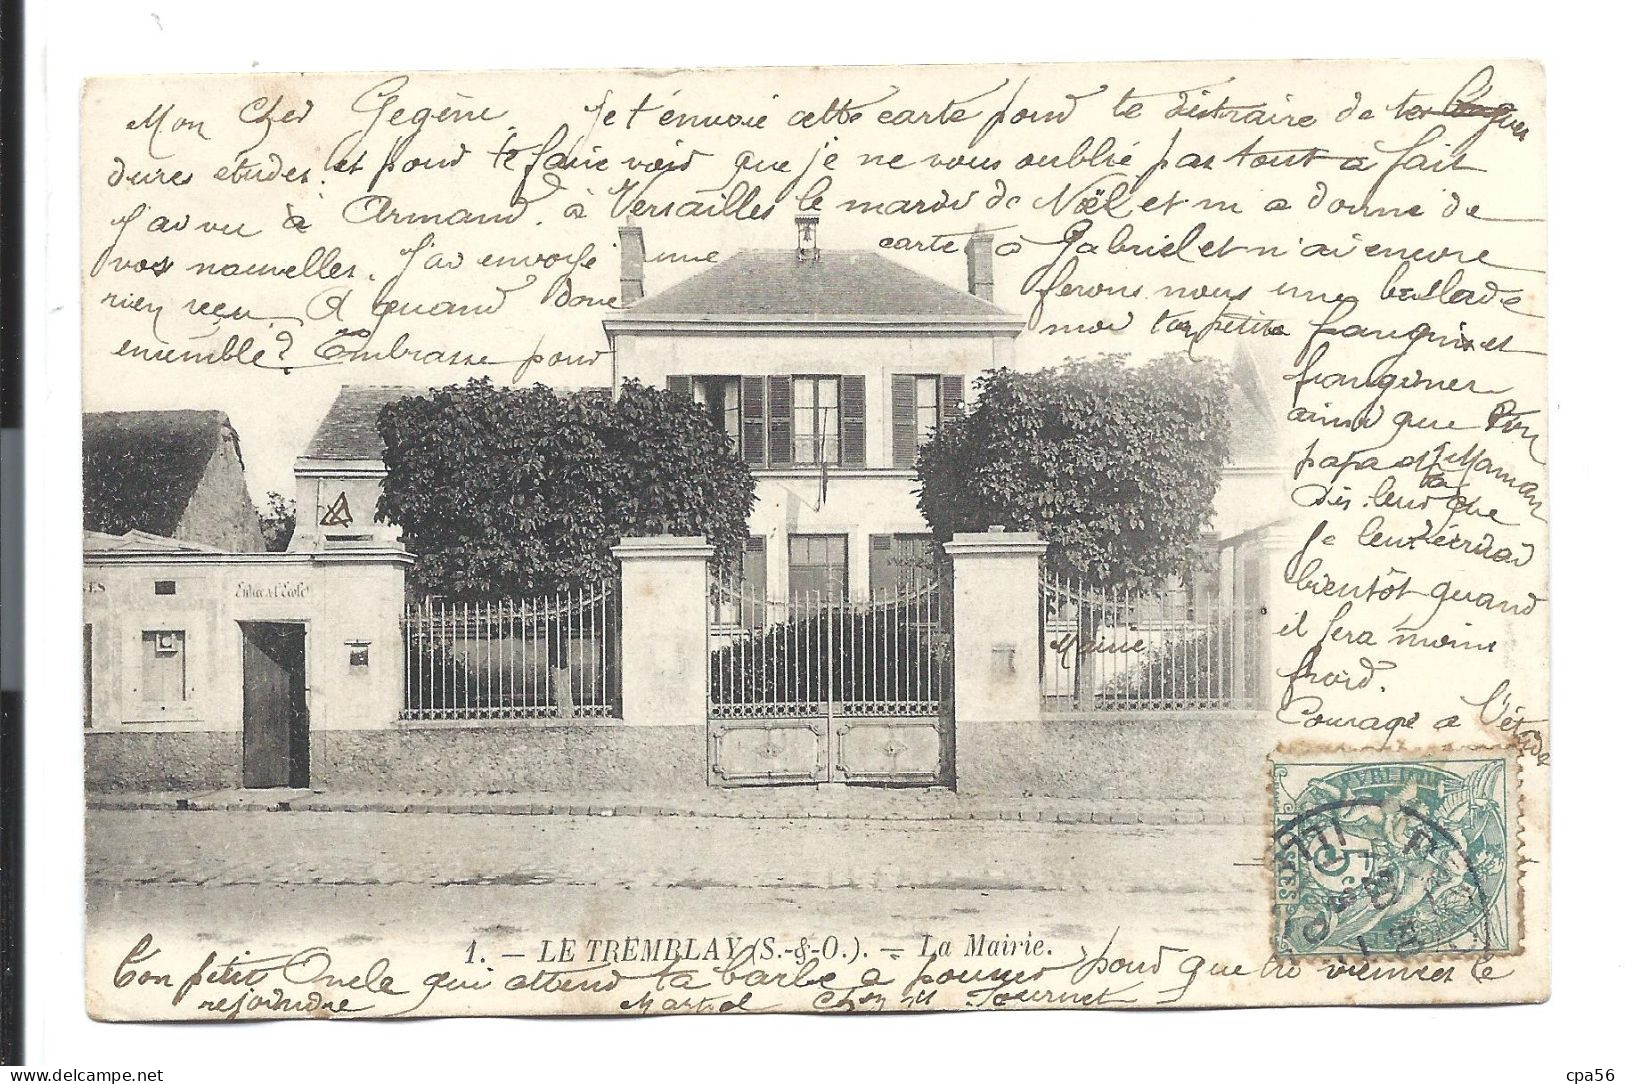 Mon Cher Gegène Je t'envoie cette carte pour te distraire de tes longues
dures études. et pour te faire voir que je ne vous oublie pas tout à fait
J'ai vu à Armand. à Versailles le mardi de Noël et m'a donné de
vos nouvelles. J'ai envoyé une carte à Gabriel et n'ai encore
rien reçu. A quand donc ferons nous une ballade
ensemble? Embrasse pour moi ton petite frangin et
frangines
ainsi que Ton
papa et ta Maman
Dis-leur que
Je leur écrirai
bientôt quand
il fera moins
froid.
Courage à l'étude
ES
Entrée de l'Ecole
Mairie
5
1. — LE TREMBLAY (S.-&-O.). — La Mairie.
Ton petit Oncle qui attend ta barbe a pousser pour que tu viennes le
rejoindre Martial Chez M. Tournet
delcampe.net
cpa56